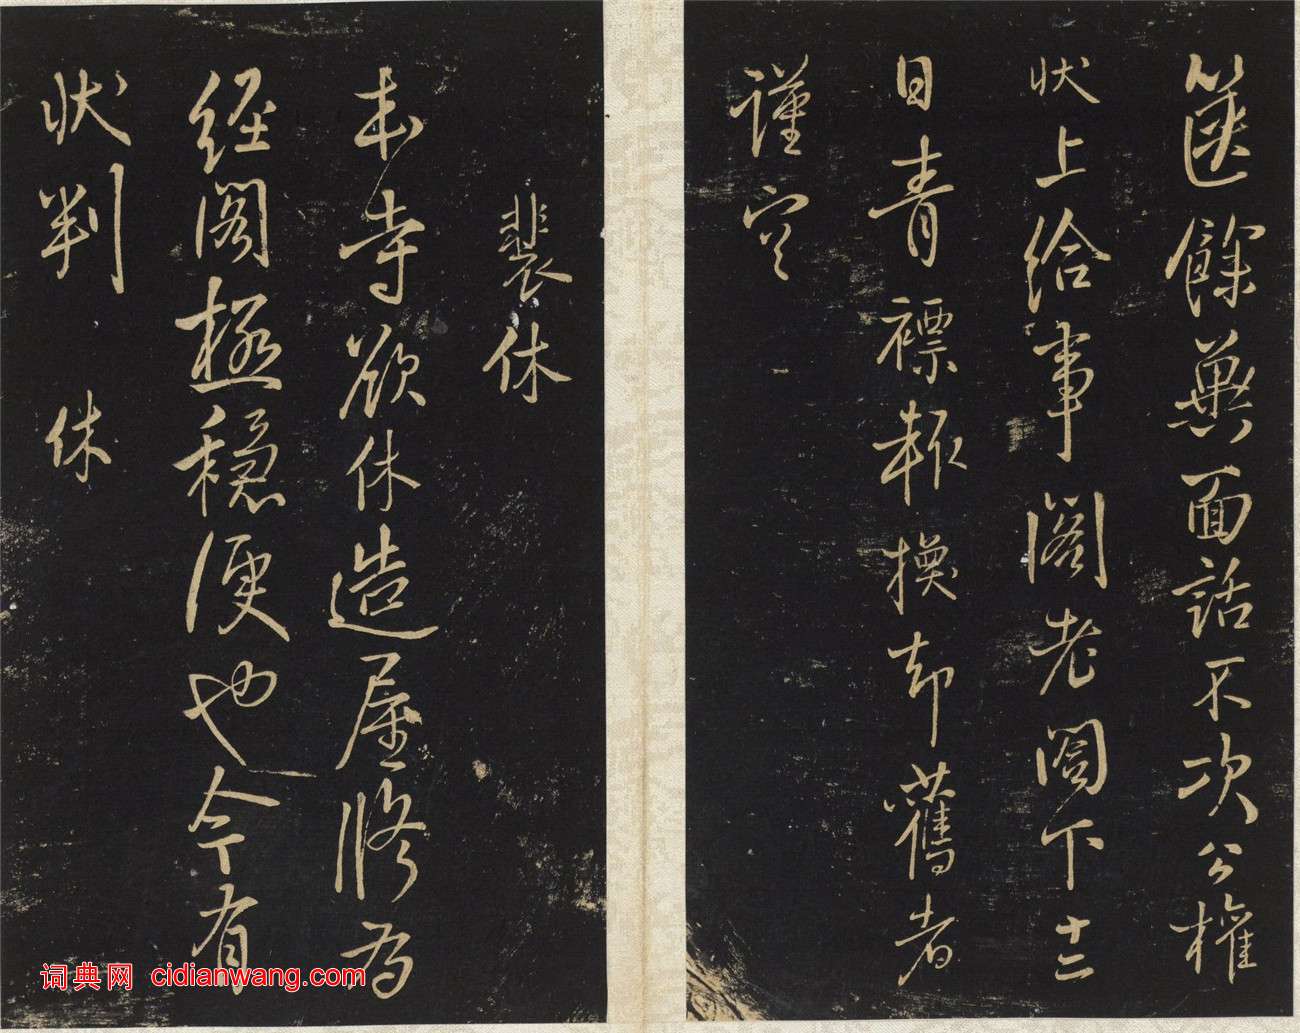 篋餘冀面話不次公權
状上給事閣老閤下十二
日青褾換却舊者
謹空
裴休
本寺欲休造屋修为
經閣極穩便也今有
状判 休
词典网 cidianwang.com